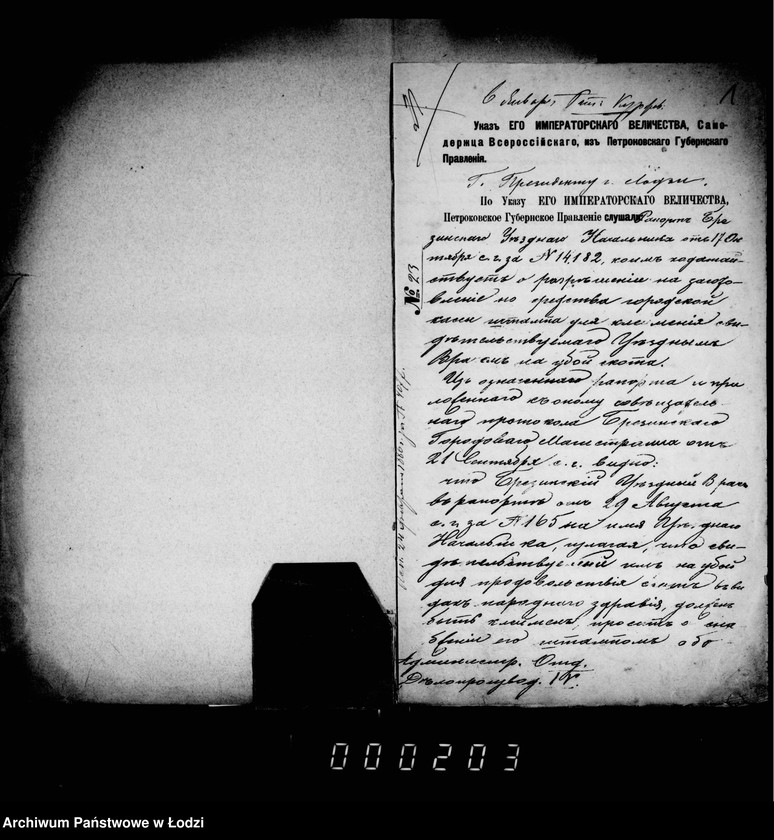 1
Указъ ЕГО ИМПЕРАТОРСКАГО ВЕЛИЧЕСТВА, Само-
держца Всероссійскаго, изъ Петроковскаго Губернскаго
Правленія.
Г. Президенту г. Лодзи.
По Указу ЕГО ИМПЕРАТОРСКАГО ВЕЛИЧЕСТВА,
Петроковское Губернское Правленіе слушало Рапортъ Бре-
зинскаго Уѣзднаго Начальника отъ 17 Ок-
тября с.г. за № 14,182, коимъ ходатай-
ствуетъ о разрѣшеніи на загото-
вленіе на средства городской
кассы штампа для клейменія сви-
дѣтельствуемаго Уѣзднымъ
Врачемъ на убой скота.
Изъ означеннаго рапорта и при
ложеннаго къ оному совѣщатель-
наго протокола Брезинскаго
Городоваго Магистрата отъ
21 Сентября с.г. видно:
что Брезинскій Уѣздный Врачъ
въ рапортѣ отъ 29 Августа
с.г. за № 165 на имя Уѣзднаго
Начальника, излагая, что сви-
дѣтельствуемый имъ на убой
для продовольствія скотъ въ ви-
дахъ народнаго здравія, долженъ
быть клейменъ, проситъ о сна-
бженіи его штампомъ обо
Административн. Отд.
Дѣлопроизвод. IV.
№ 23
000203
Archiwum Państwowe w Łodzi